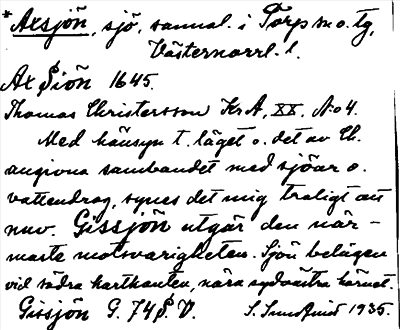 *Axsjön, sjö, samal. i Torp sn o. tg,
Västernorrl. l.
Ax Siön 1645.
Thomas Christersson KrA, XX. No 4.
Med hänsyn t. läget o. det av Ch.
angivna sambandet med sjöar o.
vattendrag, synes det mig troligt att
nuv. Gissjön utgör den när-
maste motsvarigheten. Sjön belägen
vid södra kartkanten, nära sydöstra hörnet.
Gissjön G. 74 S. V. S. Sundquist 1935.